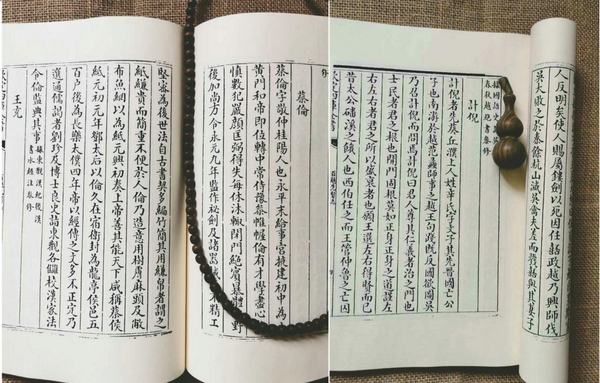 蔡倫
蔡倫字敬仲桂陽人也永平末給事宮掖建初中為
黃門和帝即位轉中常侍豫叅帷幄倫有才學盡心
慎數犯嚴顏匡弼得失每休沐輒閉門絕賓暴體野
後加尚方令永元九年監作祕劍及諸器械不精工
堅密為後世法自古書契多編竹簡其用縑帛者謂之
紙縑貴而簡重不便於人倫乃造意用樹膚麻頭及敝
布魚網以為紙元興初奏上帝善其能天下咸稱蔡侯
紙元初元年鄧太后以倫久在宿衛封為龍亭侯邑五
百戶後為長樂太僕四年帝以經傳之文多不正定乃
選通儒謁者劉珍及博士良史詣東觀各讎校漢家法
令倫監典其事據東觀漢紀後漢書水經注叅修
王充
人反明矣使人賜屬鏤劍以死因任嚭政越乃興師伐
吳大敗之於秦餘杭山滅吳禽夫差而戮嚭與其妻子
據國語史記吳
春秋越絕書叅修
計倪
計倪者先葵丘濮上人姓辛氏字文子其先晉國亡公
子也南游於越范蠡師事之越王句踐既反國欲圖吳
乃召計倪而問焉計倪曰君人尊其仁義者治之門也
士民者君之根也開門固根莫如正身正身之道謹左
右左右者君之所以盛衰者也願王選左右得賢而已
昔太公磻溪之餓人也西伯任之而王管仲魯之亡囚